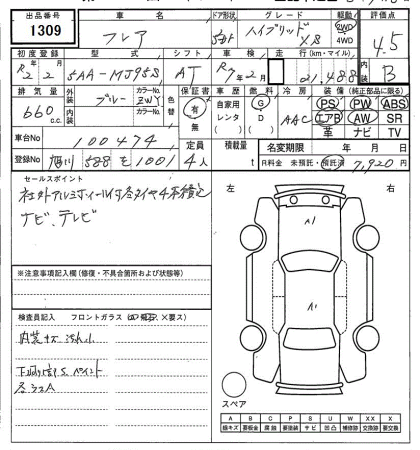 出品番号 車名 ドア形状 グレード 駆動 評価点
1309 フレア 5ドア ハイブリッド XS 2WD 4.5
初度登録 型式 シフト 車検 走行(km・マイル) 内装
R2 2月 5AA-MJ95S AT R7年2月 21,488 B
排気量 外装 カラーNo. 色替 保証書 車歴 燃料 冷房 装備(純正部品に限る)
660c.c. ブルー ZWY 有 無 自家用 レンタ G D AAC PS PW ABS
内装 カラーNo. エアB AW SR
革 ナビ TV
車台No 100474 定員 積載量 名変期限 年 月 日
登録No 旭川 588 を 1001 4人 t R料金 未預託・預託済 7,920円
セールスポイント
社外アルミホイール付冬タイヤ4本積込
ナビ、テレビ
左 右
※注意事項記入欄(修復・不具合箇所および状態等)
検査員記入 フロントガラス (凹 飛石 ×要ス)
内装キズ 汚れ小
各ショA
スペア
A B C P S U W X XX X
線キズ 要板金 腐蝕 要塗装 サビ 凹凸 補修跡 要交換 交換済 要交換